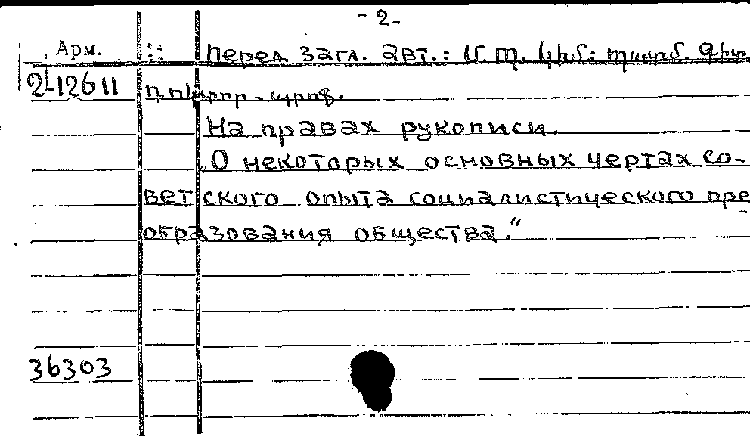 - 2 -
Арм. :: Перед загл. авт.: Մ. Պ. Կիմ:
2-12611
На правах рукописи.
О некоторых основных чертах со-
ветского опыта социалистического пре
образования общества."
36303